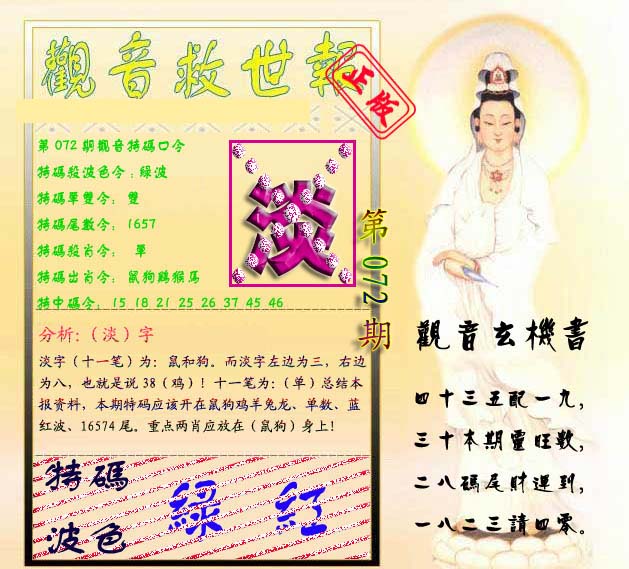 觀音救世報
正版
第 072 期觀音特碼口令
特碼殺波色令：綠波
特碼單雙令： 雙
特碼尾數令： 1657
特碼殺肖令： 單
特碼出肖令： 鼠狗鷄猴馬
特中碼令： 15 18 21 25 26 37 45 46
淡
第 072 期
分析:（淡）字
淡字（十一笔）为：鼠和狗。而淡字左边为三，右边
为八，也就是说 38（鸡）！十一笔为:（单）总结本
报资料，本期特码应该开在鼠狗鸡羊兔龙、单数、蓝
红波、16574 尾。重点两肖应放在（鼠狗）身上！
特碼
波色
綠 紅
觀音玄機書
四十三五配一九，
三十本期靈旺數，
二八碼尾財運到，
一八二三請四零。